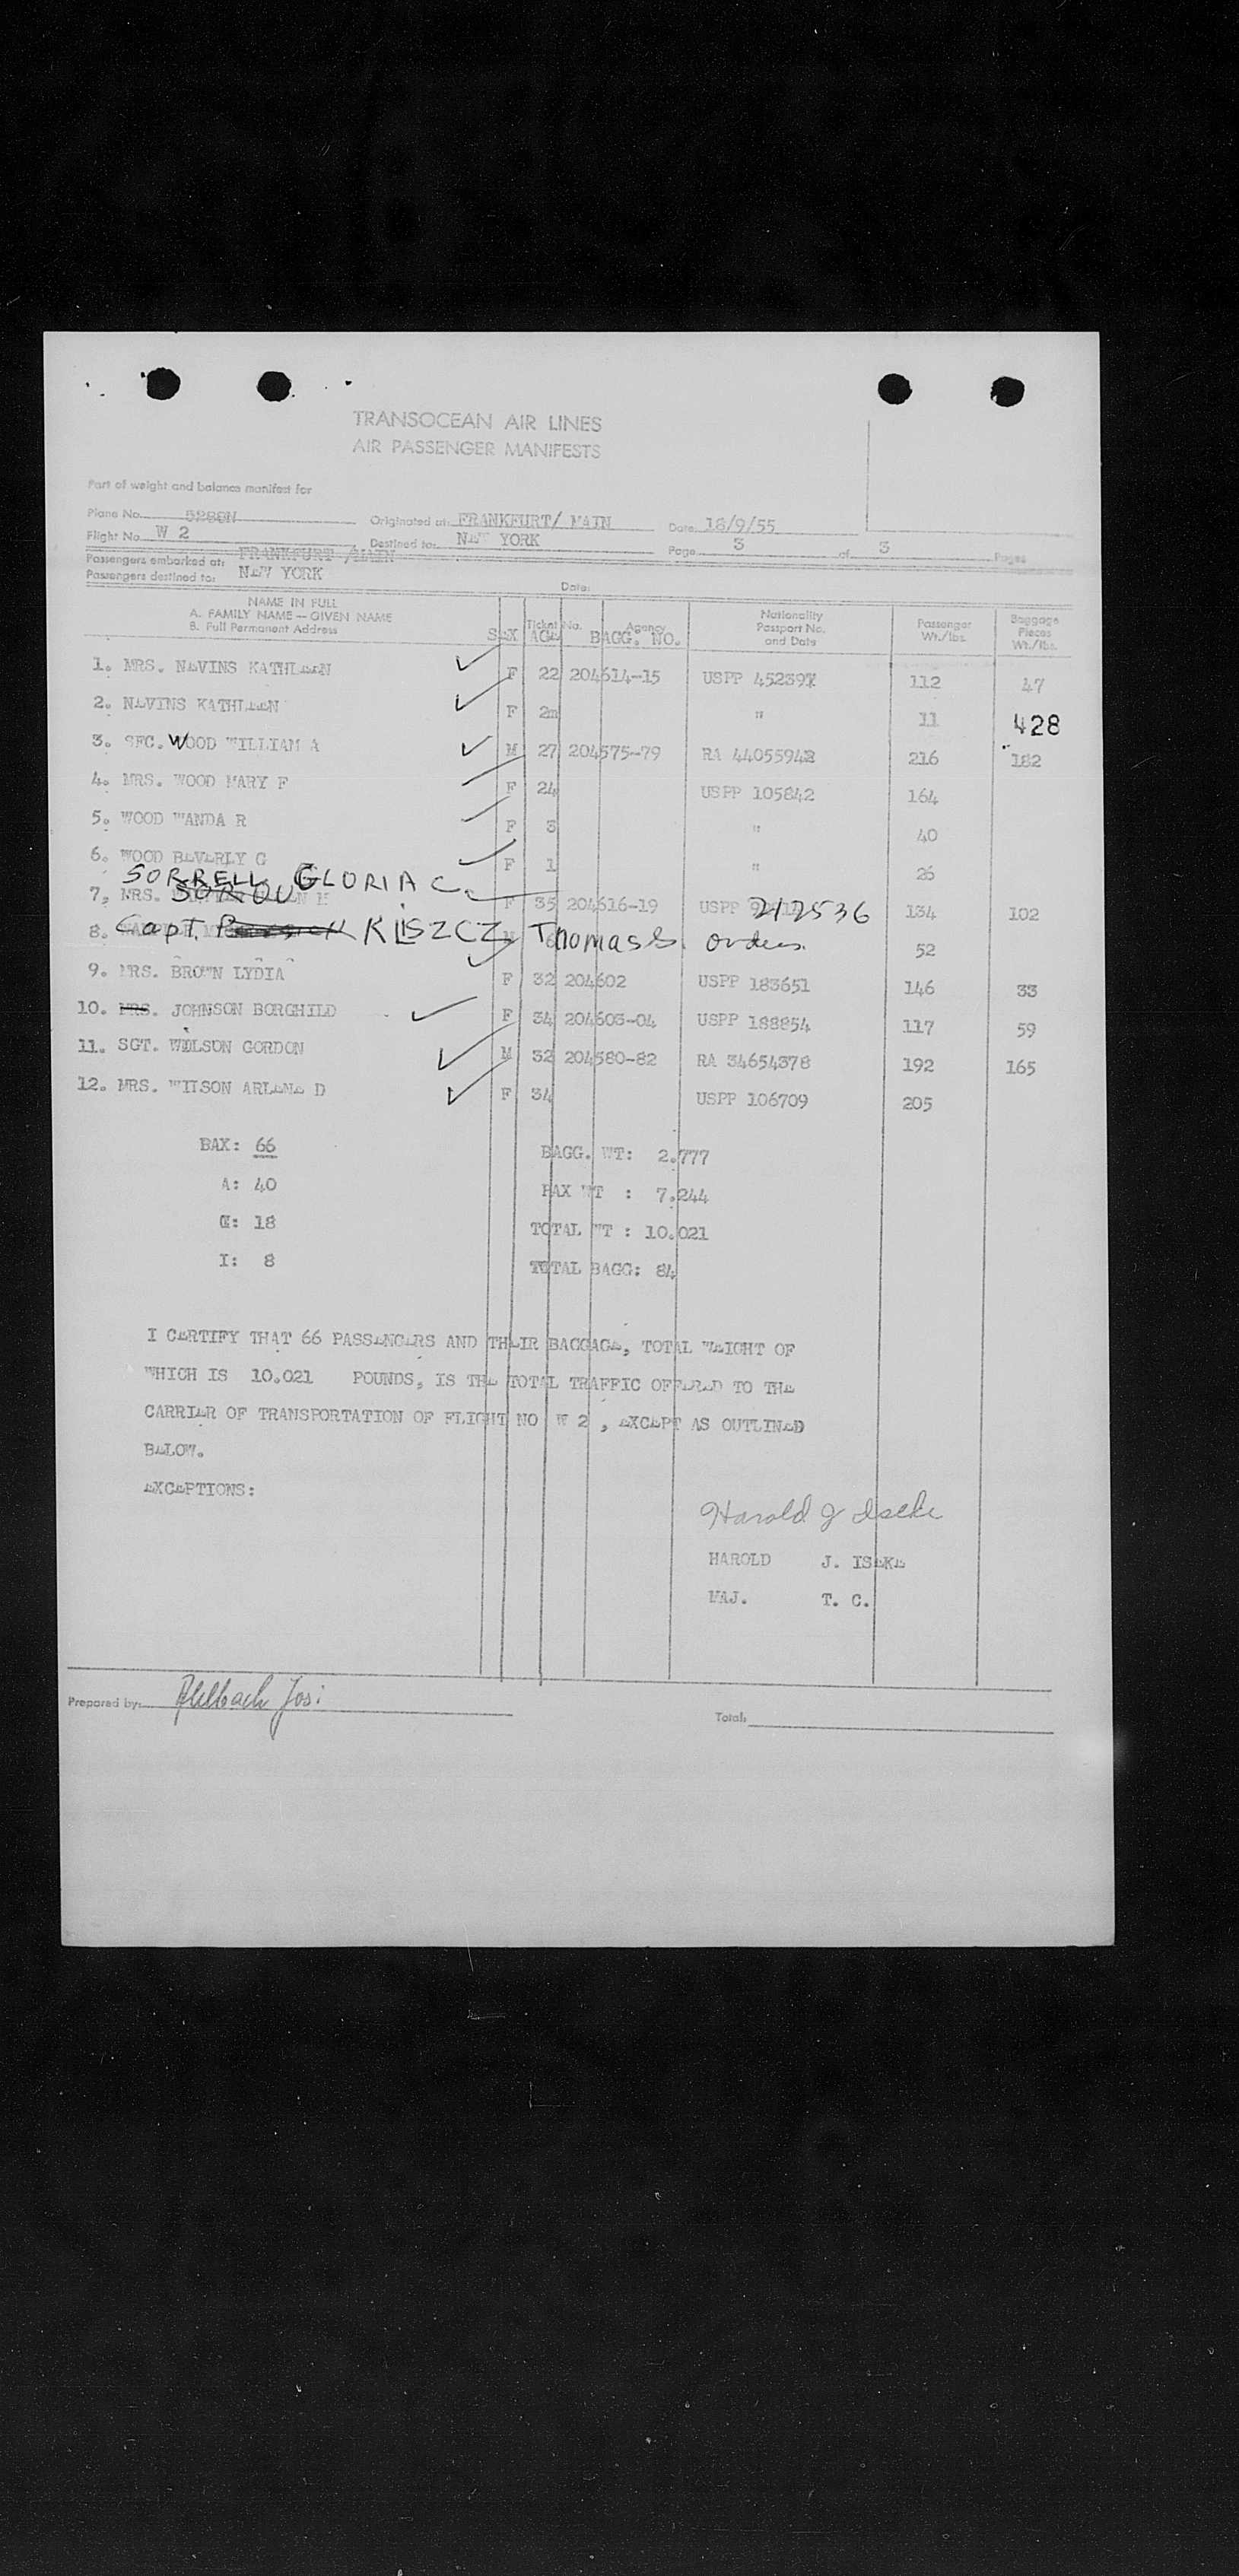 TRANSOCEAN AIR LINES
AIR PASSENGER MANIFESTS
Part of weight and balance manifest for
Plane No. Originated at: FRANKFURT/ MAIN Date: 18/9/55
Flight No. W 2 Destined to: NEW YORK Page 3 of 3 Pages
Passengers embarked at: FRANKFURT /MAIN
Passengers destined to: NEW YORK Date:
NAME IN FULL
A. FAMILY NAME — GIVEN NAME
B. Full Permanent Address
SEX
Ticket No. Agency
AGE BAGG. NO.
Nationality
Passport No.
and Date
Passenger
Wt./lbs.
Baggage
Pieces
Wt./lbs.
1. MRS. NEVINS KATHLEEN F 22 204614-15 USPP 452397 112 47
2. NEVINS KATHLEEN F 2m " 11 428
3. SFC. WOOD WILLIAM A M 27 204575-79 RA 44055942 216 182
4. MRS. WOOD MARY F F 24 USPP 105842 164
5. WOOD WANDA R F 3 " 40
6. WOOD BEVERLY G F 1 " 26
SORRELL GLORIA C.
7. MRS. F 35 204616-19 USPP 212536 134 102
8. Capt. KLISZCZ, Thomas S. orders 52
9. MRS. BROWN LYDIA F 32 204602 USPP 183651 146 33
10. MRS. JOHNSON BORGHILD F 34 204603-04 USPP 188854 117 59
11. SGT. WILSON GORDON M 32 204580-82 RA 34654378 192 165
12. MRS. WITSON ARLENE D F 34 USPP 106709 205
BAX: 66 BAGG. WT: 2.777
A: 40 PAX WT : 7.244
C: 18 TOTAL WT : 10.021
I: 8 TOTAL BAGG: 84
I CERTIFY THAT 66 PASSENGERS AND THEIR BAGGAGE, TOTAL WEIGHT OF
WHICH IS 10.021 POUNDS, IS THE TOTAL TRAFFIC OFFERED TO THE
CARRIER OF TRANSPORTATION OF FLIGHT NO W 2 , EXCEPT AS OUTLINED
BELOW.
EXCEPTIONS:
Harold J Iseke
HAROLD J. ISEKE
MAJ. T. C.
Prepared by: Josi
Total: